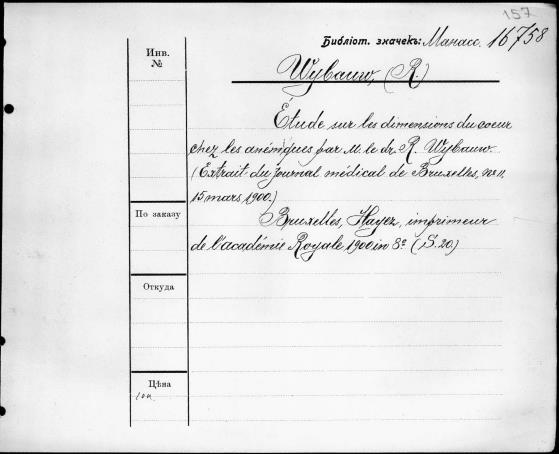 157
Библіот. значекъ: Манасс. 16758
Инв.
№
Wybauw, (R.)
Étude sur les dimensions du coeur
chez les anémiques par M. le dr. R. Wybauw.
(Extrait du Journal médical de Bruxelles, № 11,
15 mars 1900.)
По заказу
Bruxelles, Hayez, imprimeur
de l'académie Royale 1900 in 8º (S. 20.)
Откуда
Цѣна